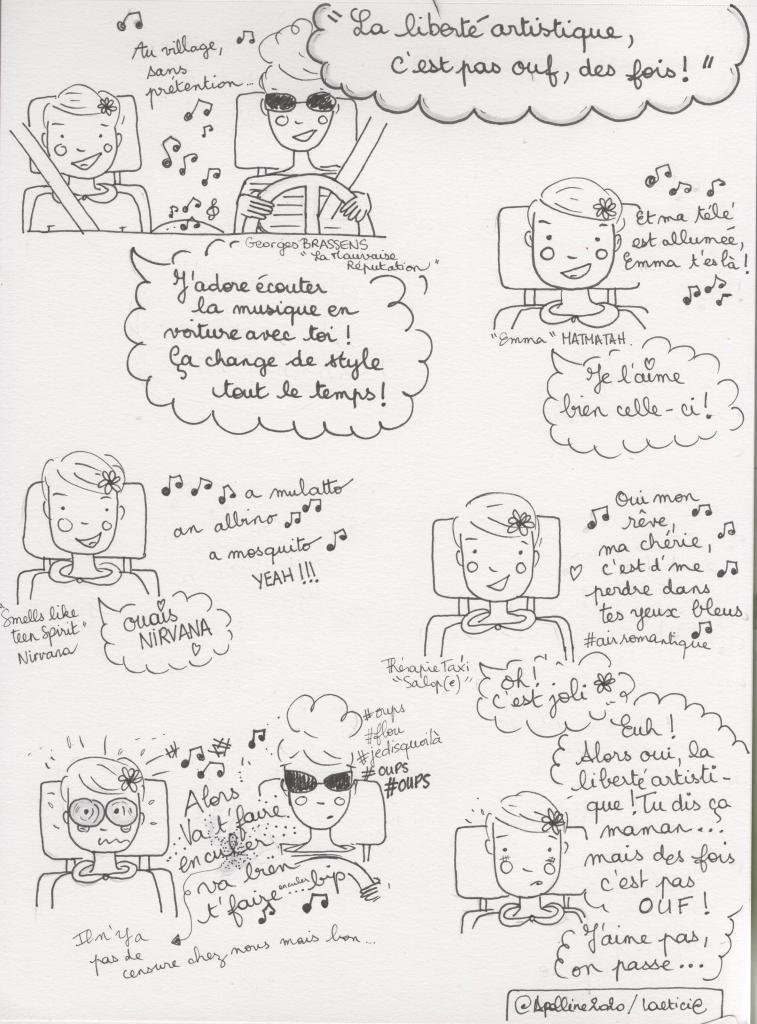 "La liberté artistique,
c'est pas ouf, des fois!"
Au village,
sans
prétention...
Georges BRASSENS
"La Mauvaise
Réputation"
J'adore écouter
la musique en
voiture avec toi!
Ça change de style
tout le temps!
Et ma télé
est allumée,
Emma t'es là!
"Emma" MATMATAH.
Je l'aime
bien celle-ci!
a mulatto
an albino
a mosquito
YEAH!!!
"Smells like
teen Spirit"
Nirvana
Ouais
NIRVANA
Oui mon
rêve,
ma chérie,
c'est d'me
perdre dans
tes yeux bleus
#airromantique
Thérapie Taxi
"Salop(e)"
oh!
c'est joli
#oups
#flou
#jedisquoilà
#oups
#OUPS
Alors
Va t'faire
enculer
va bien
t'faire enculer...bip
Il n'y a
pas de
censure chez nous mais bon...
Euh!
Alors oui, la
liberté artisti-
que! Tu dis ça
maman...
mais des fois
c'est pas
OUF!
J'aime pas,
on passe...
@Apolline2010/Laetici@